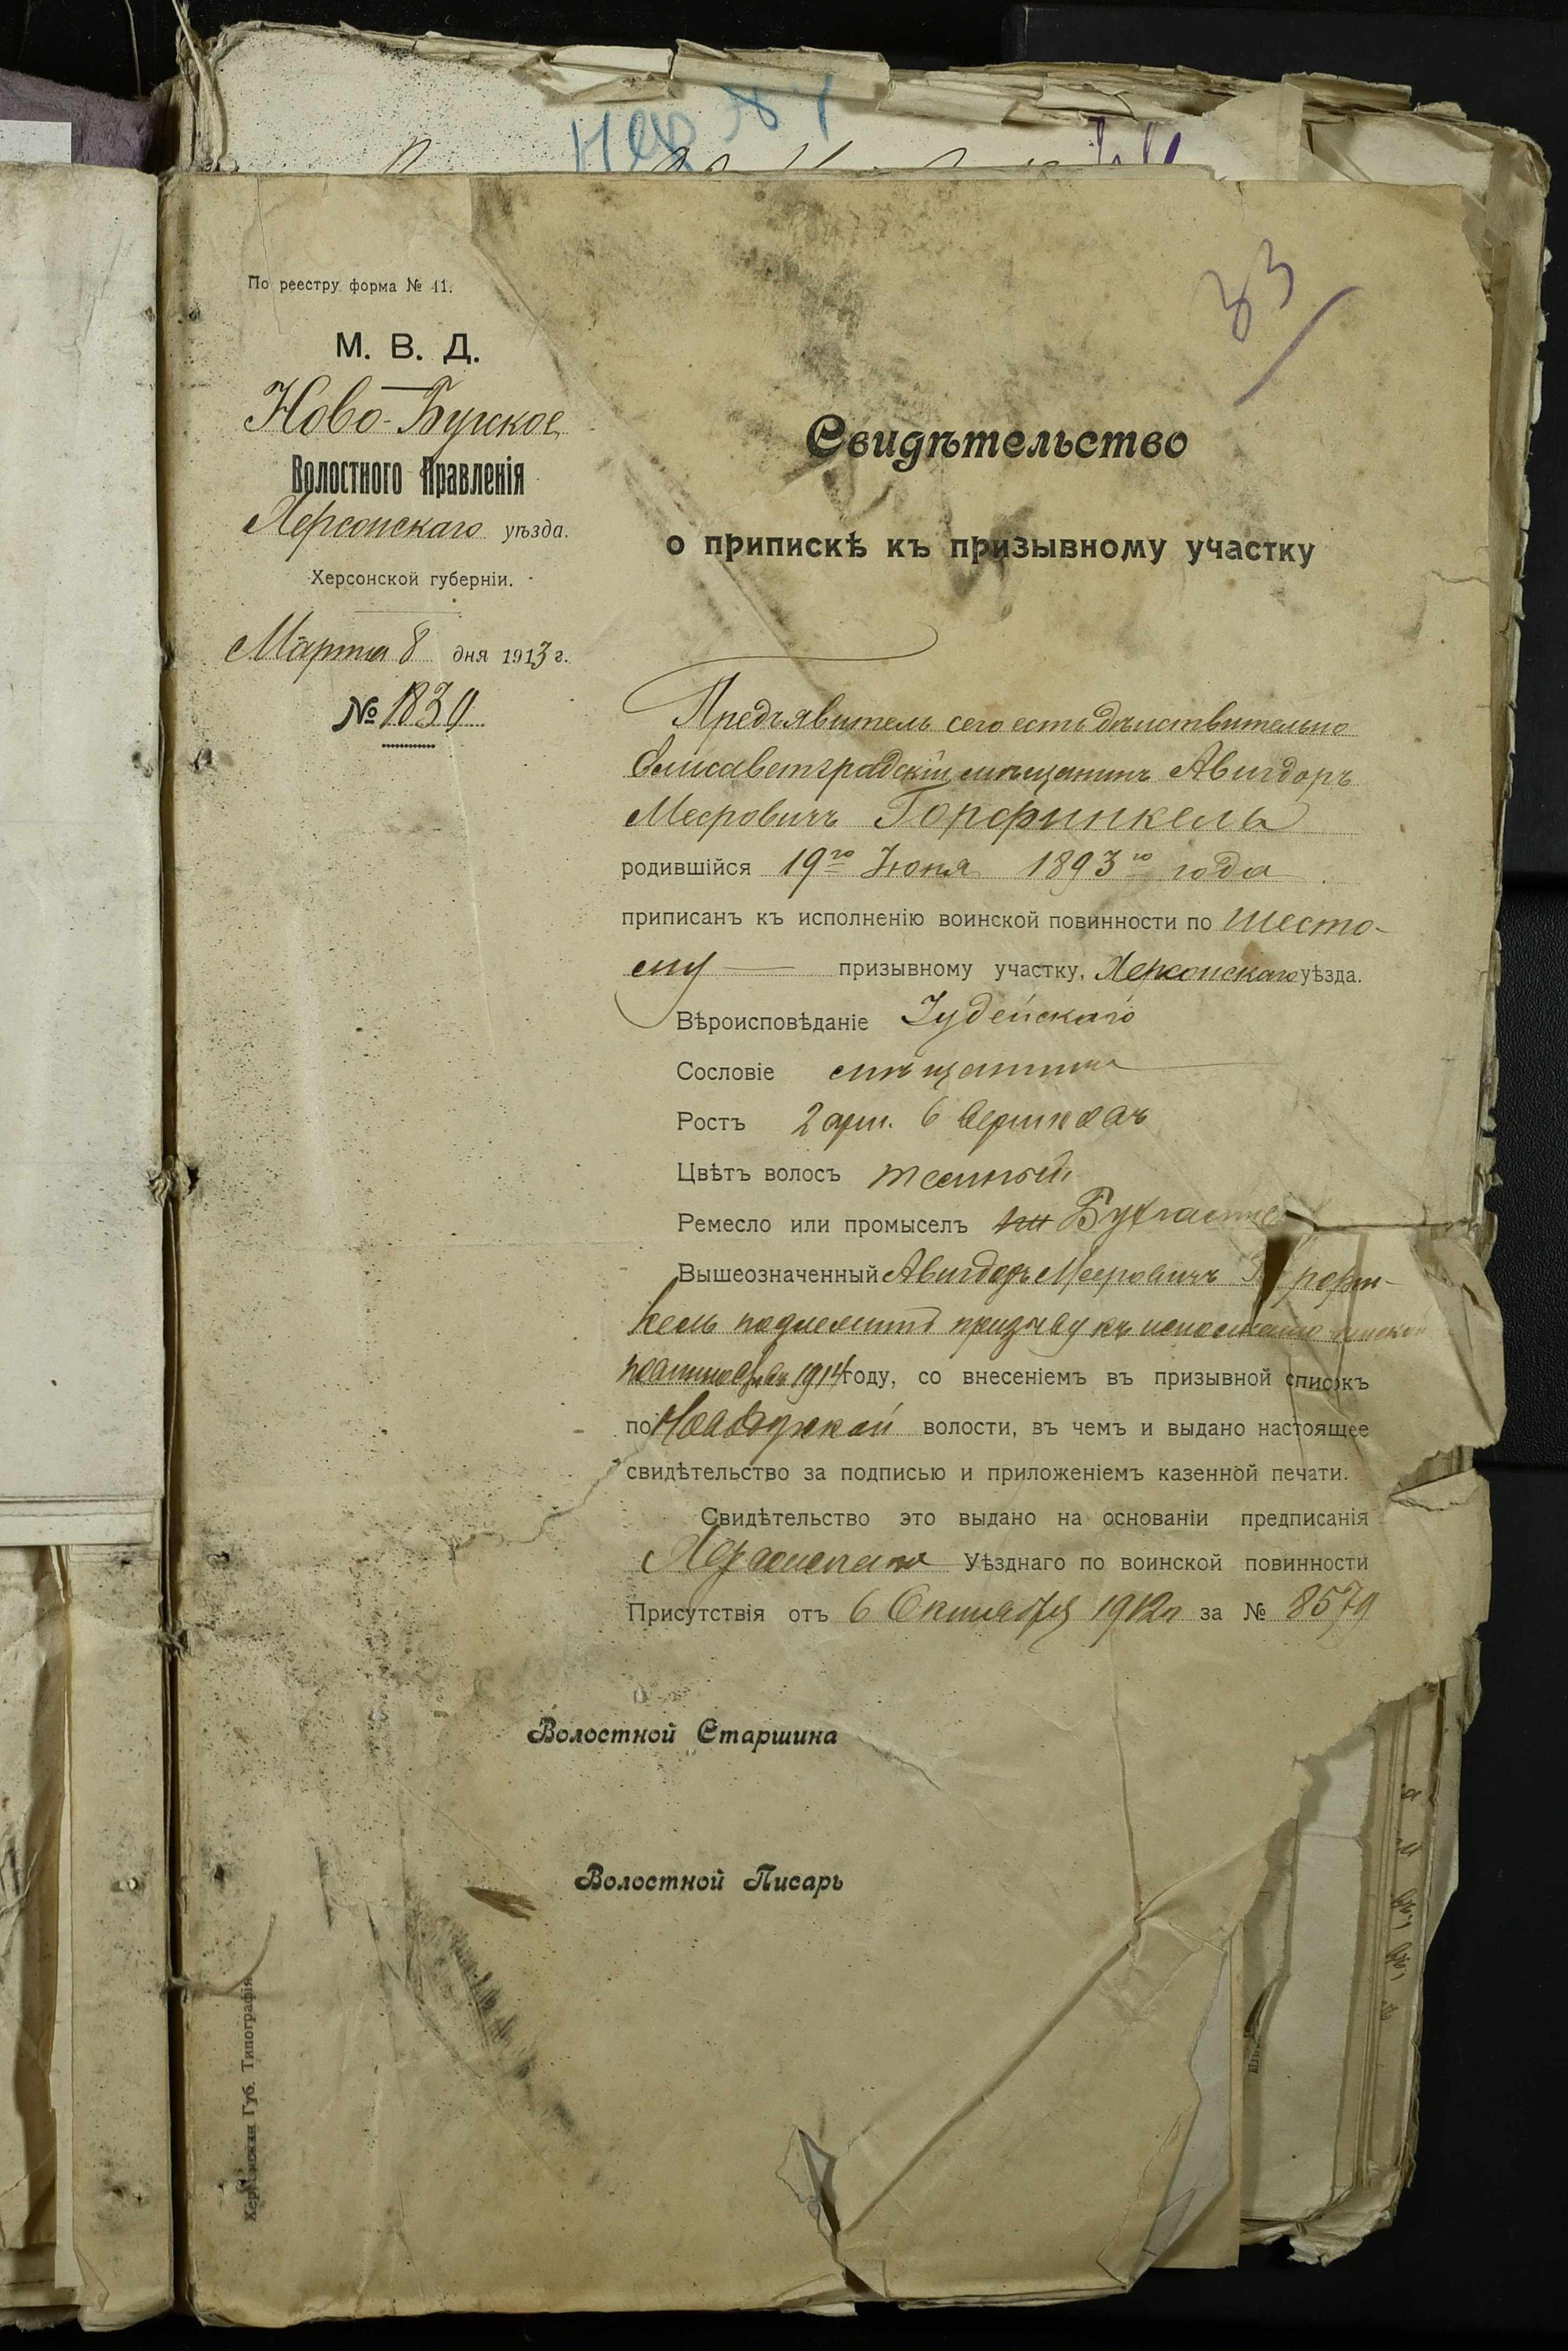 33
По реестру форма № 11.
М. В. Д.
Ново-Бугское
Волостного Правленія
Херсонскаго уѣзда.
Херсонской губерніи.
Марта 8 дня 1913 г.
№ 1839
Свидѣтельство
о припискѣ къ призывному участку
Предъявитель сего есть дѣйствительно
Елисаветградскій мѣщанинъ Авигдоръ
Мееровичъ Горфинкель
родившійся 19го Іюня 1893го года
приписанъ къ исполненію воинской повинности по Шесто-
му призывному участку, Херсонскаго уѣзда.
Вѣроисповѣданіе Іудейскаго
Сословіе мѣщанинъ
Ростъ 2 арш. 6 вершковъ
Цвѣтъ волосъ темный
Ремесло или промыселъ
Вышеозначенный Авигдоръ Мееровичъ Горфин-
кель подлежитъ призыву къ исполненію воинской
повинности въ 1914 году, со внесеніемъ въ призывной списокъ
по Новобугской волости, въ чемъ и выдано настоящее
свидѣтельство за подписью и приложеніемъ казенной печати.
Свидѣтельство это выдано на основаніи предписанія
Херсонскаго Уѣзднаго по воинской повинности
Присутствія отъ 6 Октября 1912 г за № 8579
Волостной Старшина
Волостной Писарь
Херсонская Губ. Типографія